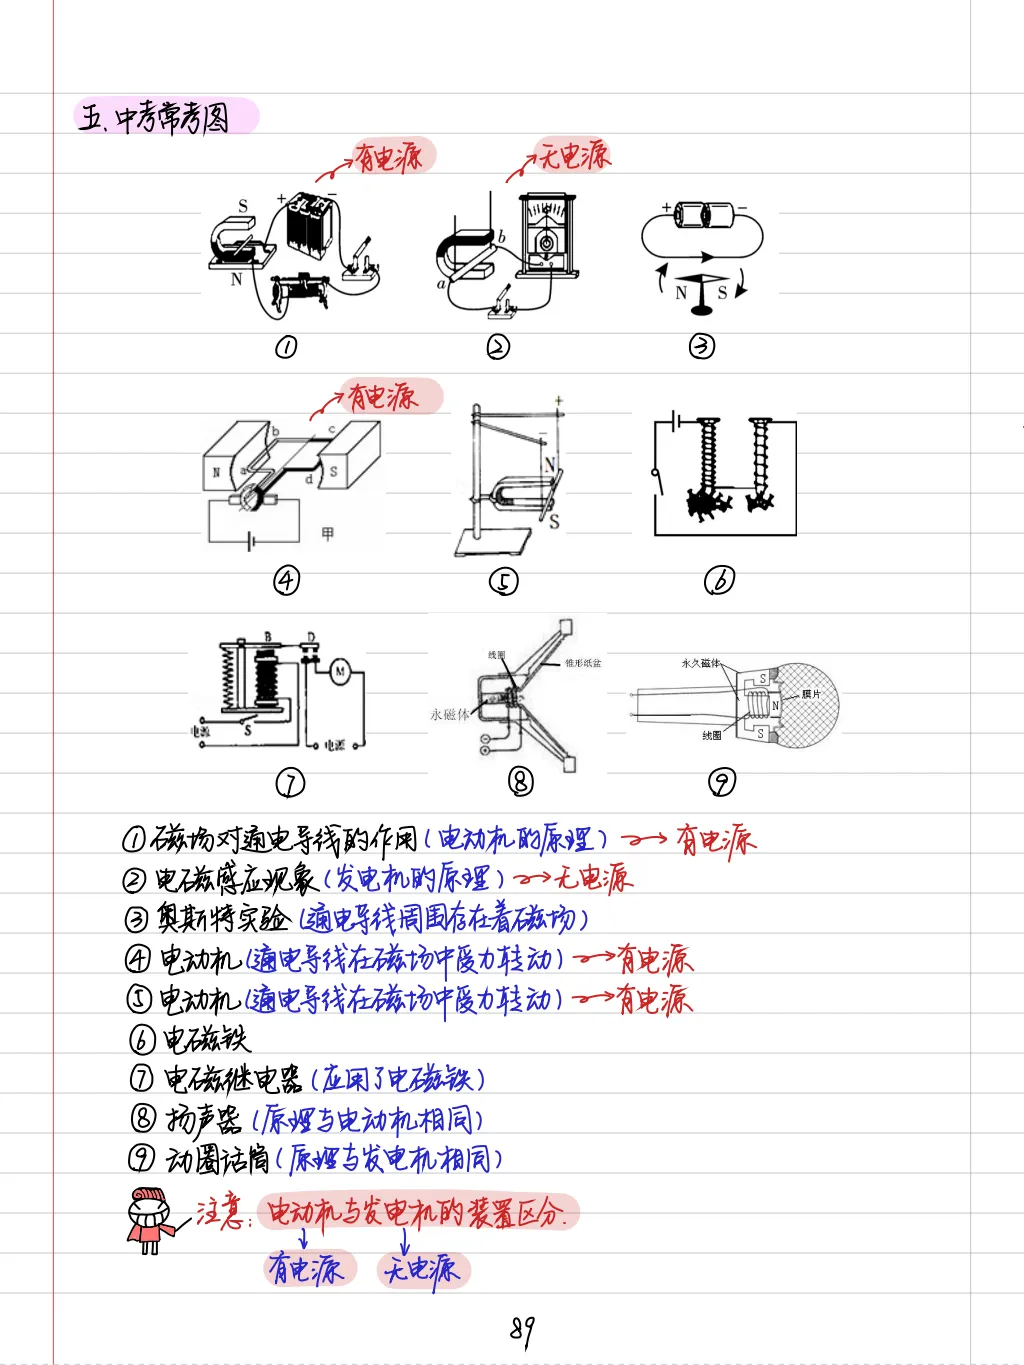 五.中考常考图
有电源
无电源
S + −
N
b
a
+ −
N S
① ② ③
有电源
b c
N a d S
甲
+
−
N
S
④ ⑤ ⑥
B D
M
S
电源
电源
线圈
锥形纸盆
永磁体
永久磁体
S
膜片
N
线圈
S
⑦ ⑧ ⑨
①磁场对通电导线的作用(电动机的原理)→有电源
②电磁感应现象(发电机的原理)→无电源
③奥斯特实验(通电导线周围存在着磁场)
④电动机(通电导线在磁场中受力转动)→有电源
⑤电动机(通电导线在磁场中受力转动)→有电源
⑥电磁铁
⑦电磁继电器(应用了电磁铁)
⑧扬声器(原理与电动机相同)
⑨动圈话筒(原理与发电机相同)
注意:电动机与发电机的装置区分.
有电源 无电源
89